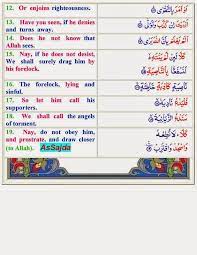 12. Or enjoins righteousness.
أَوْ أَمَرَ بِالتَّقْوَىٰ
13. Have you seen, if he denies
and turns away.
أَرَأَيْتَ إِن كَذَّبَ وَتَوَلَّىٰ
14. Does he not know that
Allah sees.
أَلَمْ يَعْلَم بِأَنَّ اللَّهَ يَرَىٰ
15. Nay, if he does not desist,
We shall surely drag him by
his forelock.
كَلَّا لَئِن لَّمْ يَنتَهِ
لَنَسْفَعًا بِالنَّاصِيَةِ
16. The forelock, lying and
sinful.
نَاصِيَةٍ كَاذِبَةٍ خَاطِئَةٍ
17. So let him call his
supporters.
فَلْيَدْعُ نَادِيَهُ
18. We shall call the angels
of torment.
سَنَدْعُ الزَّبَانِيَةَ
19. Nay, do not obey him,
and prostrate, and draw closer
(to Allah). AsSajda
كَلَّا لَا تُطِعْهُ
وَاسْجُدْ وَاقْتَرِب